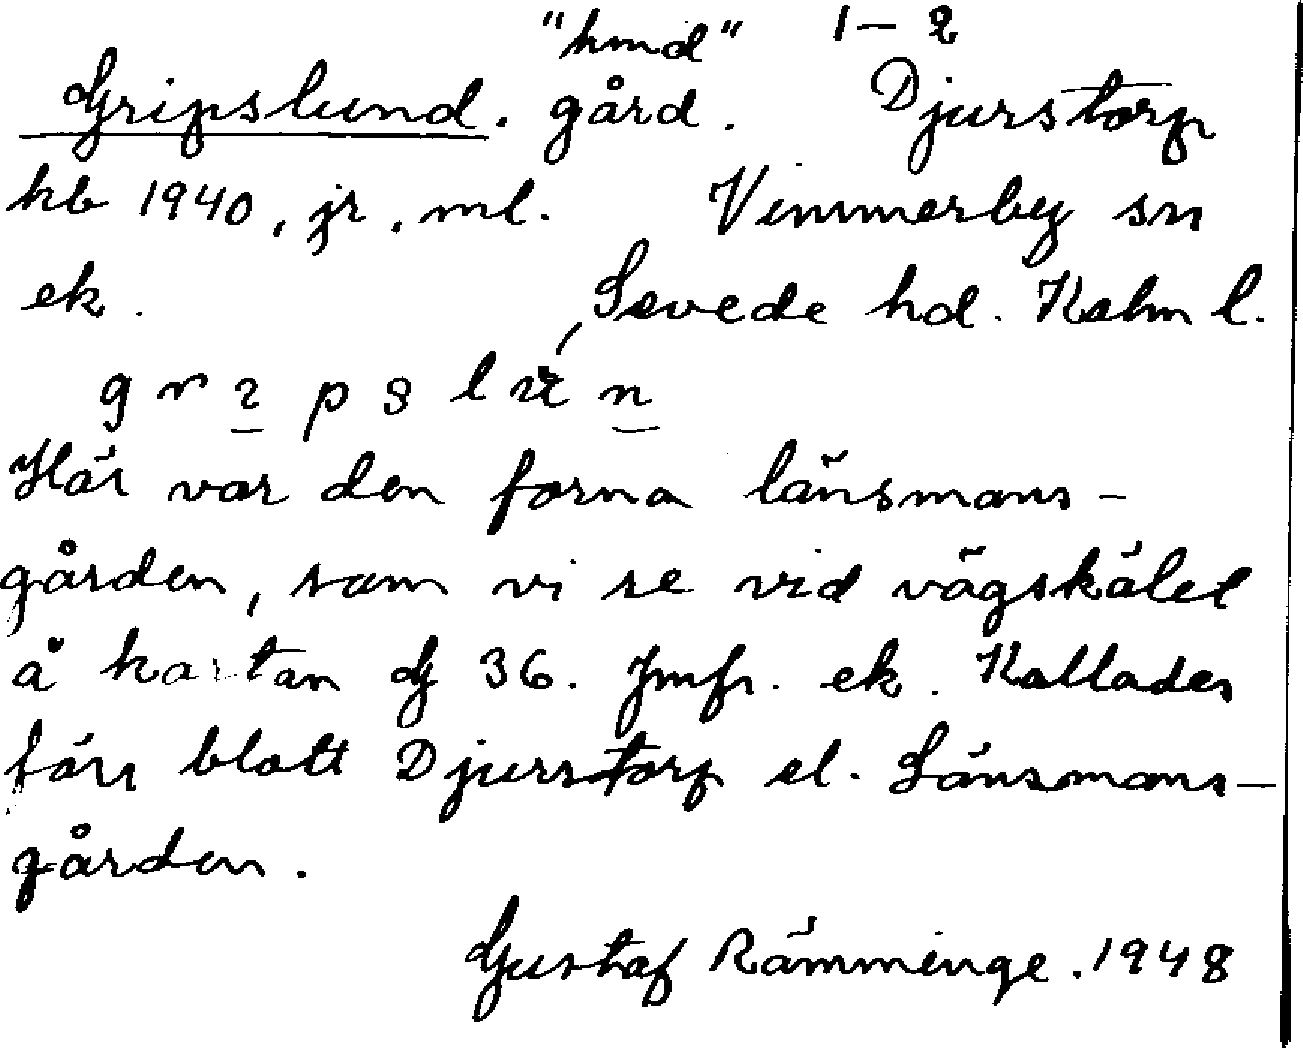 "hmd" 1-2
Gripslund. gård. Djurstorp
kb 1940, jr, ml. Vimmerby sn
ek. Sevede hd. Kalm l.
Här var den forna länsmans-
gården, som vi se vid vägskälet
å kartan G 36. Jmfr. ek. Kallades
förr blott Djurstorp el. Länsmans-
gården.
Gustaf Rämminge. 1948